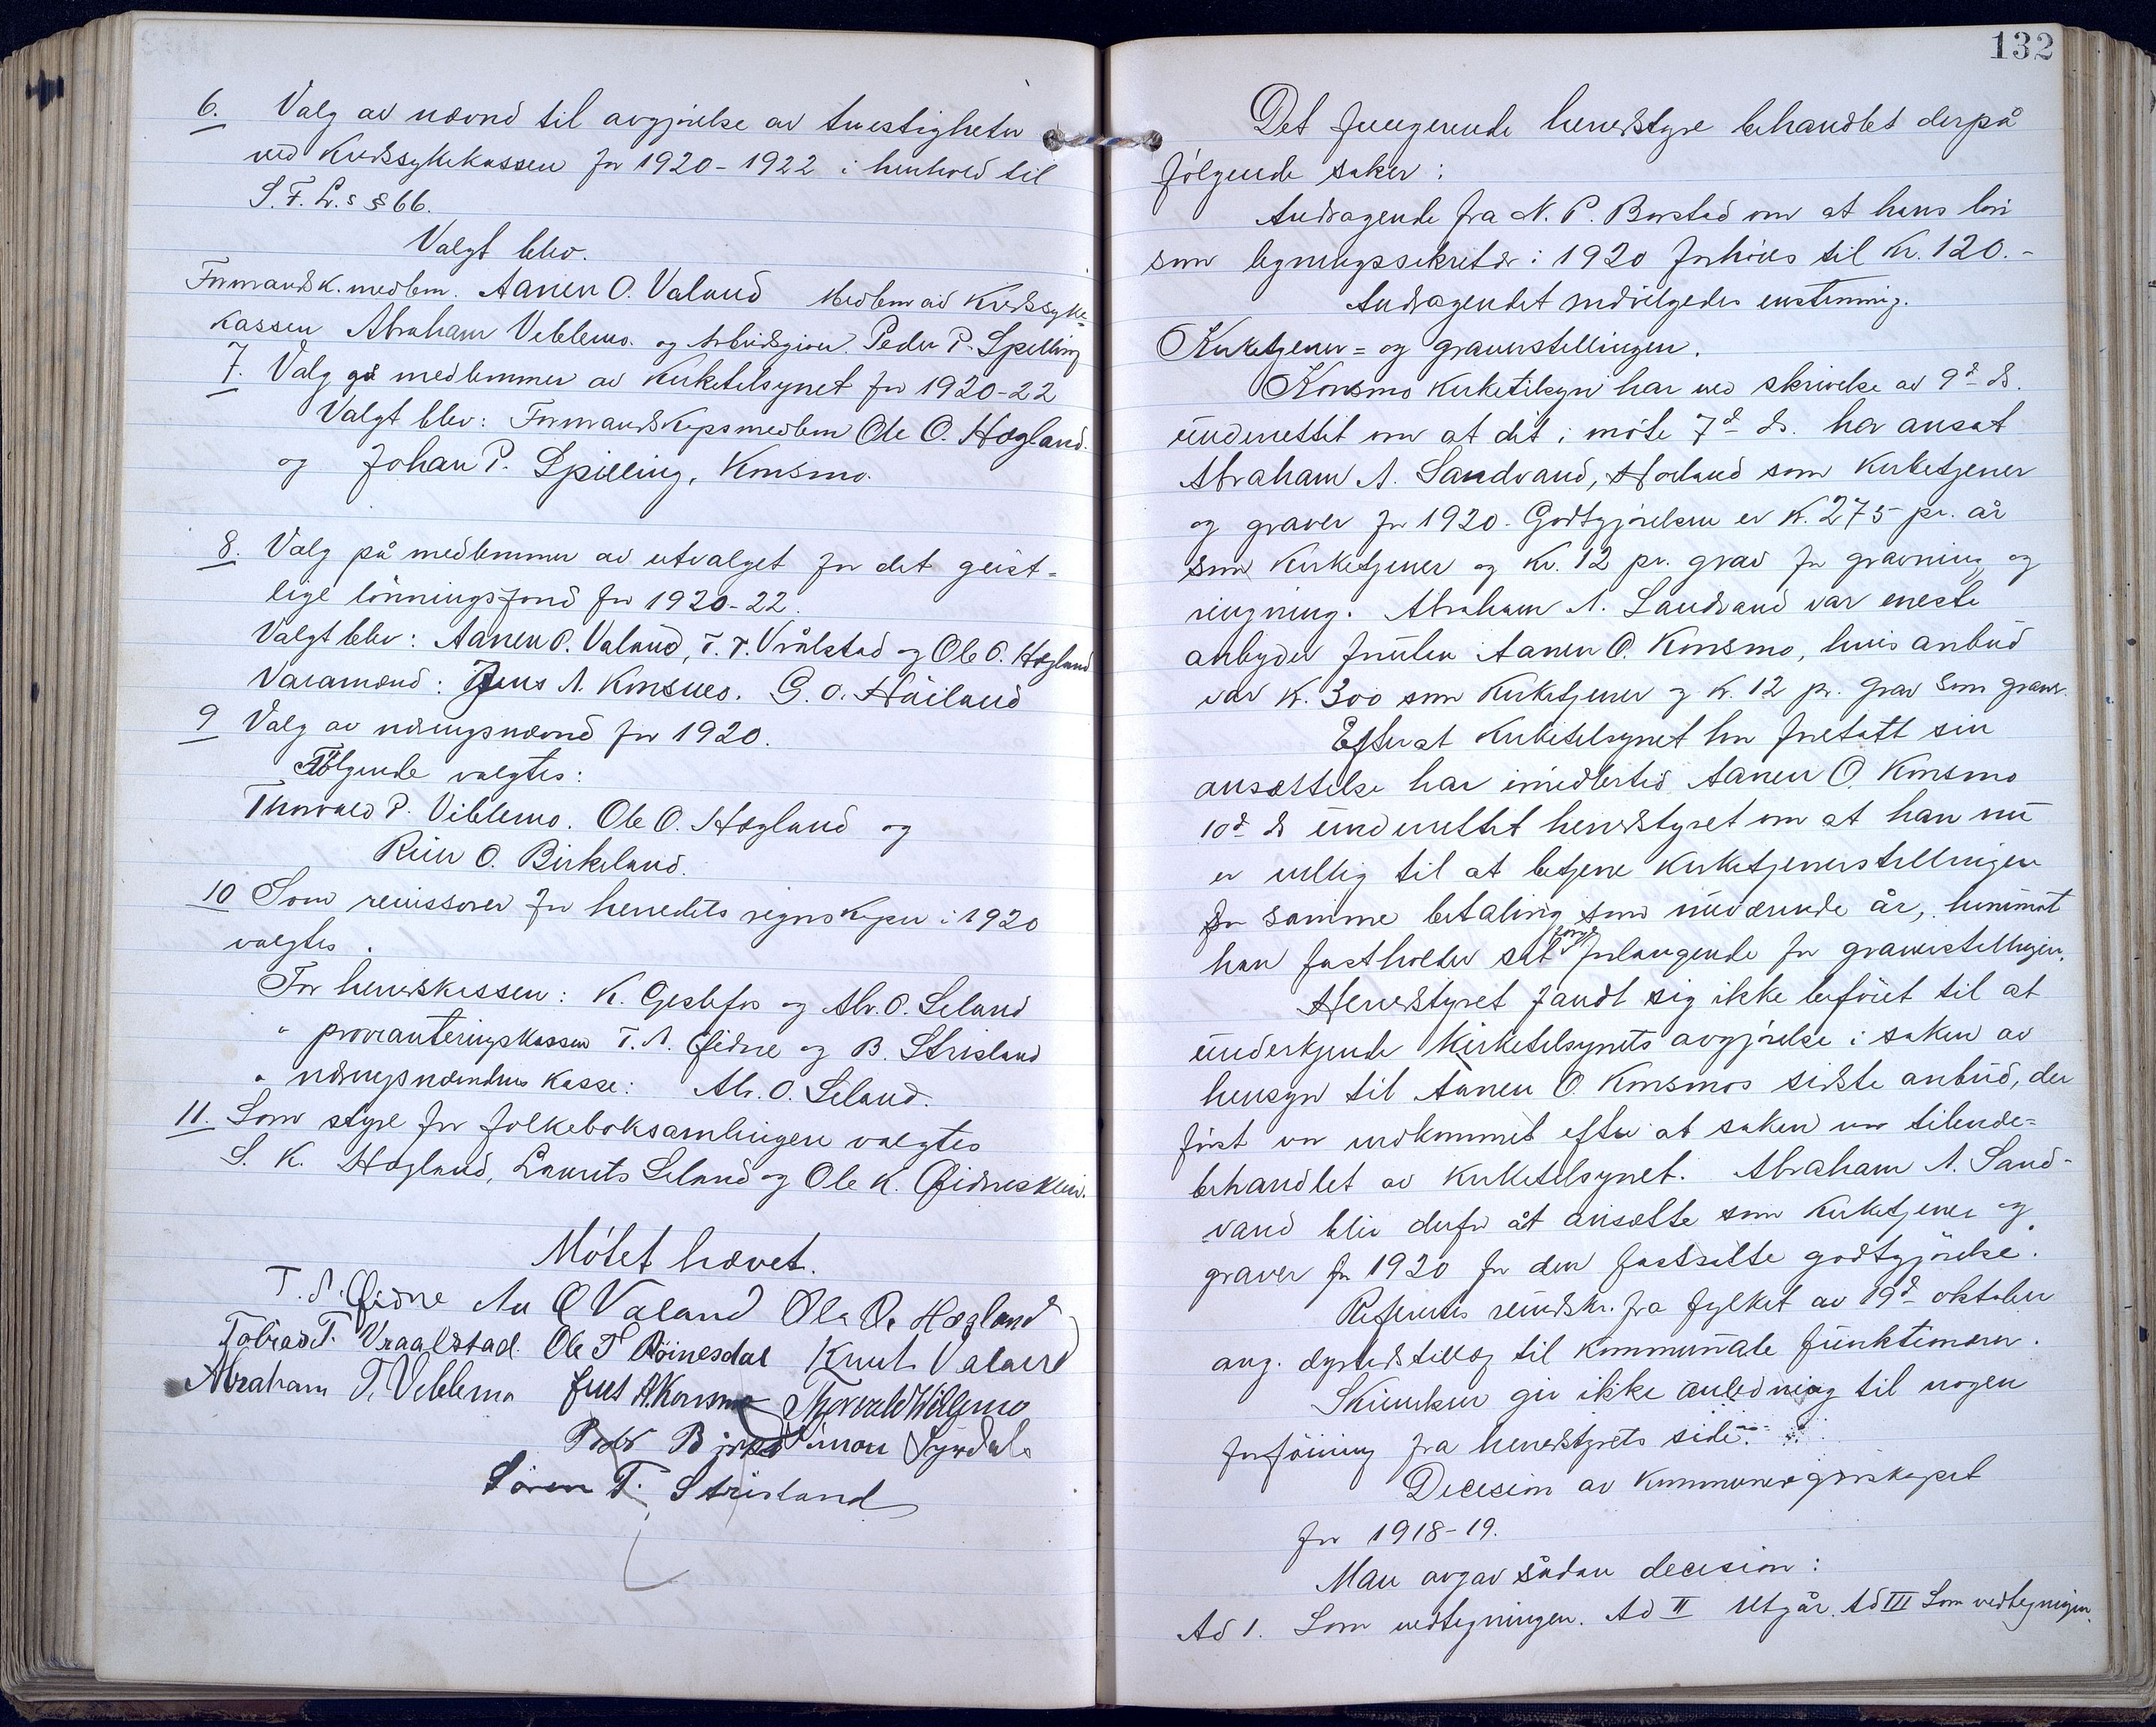 6. Valg av nævnd til avgjørelse av tvistigheter
ved Kredssykekassen for 1920-1922 i henhold til
S. F. L.s § 66.
Valgt blev.
Formandsk. medlem. Aanen O. Valand Medlem av Kredssyke=
kassen Abraham Veblemo. og Arbeidsgiver. Peder P. Spilling
7. Valg på medlemmer av Kirketilsynet for 1920-22
Valgt blev: Formandskapsmedlem Ole O. Hægland.
og Johan P. Spilling, Konsmo.
8. Valg på medlemmer av utvalget for det geist=
lige lönningsfond for 1920-22.
Valgt blev: Aanen O. Valand, T. T. Vrålstad og Ole O. Hægland
Varamænd: Jens A. Konsmo. G. O. Håiland
9 Valg av næringsnævnd for 1920.
Følgende valgtes:
Thorvald P. Viblemo. Ole O. Hægland og
Reier O. Birkeland.
10 Som revissorer for herredets regnskaper i 1920
valgtes.
For herredskassen: K. Gislefos og Alv. O. Leland
" provianteringskassen T. A. Øidne og B. Strisland
" næringsnævndens kasse: Alv. O. Leland.
11. Som styre for folkeboksamlingen valgtes
S. K. Hægland, Laurits Leland og Ole K. Øidneskleiv.
Møtet hævet.
T. A. Øidne Aa O Valand Ola O. Hægland
Tobias T. Vraalstad. Ole T Röinesdal Knut Valand
Abraham T. Veblemo Jens A. Konsmo Thorvald Viblemo
Peder Simon Syrdal
Sören T. Strisland
132
Det fungerende herredstyre behandlet derpå
følgende saker:
Andragende fra N. P. Borstad om at hans løn
som ligningssekretær i 1920 forhøies til Kr. 120.-
Andragendet indvilgedes enstemmig.
Kirketjener= og graverstillingen.
Konsmo Kirketilsyn har ved skrivelse av 9d ds.
underrettet om at det i møte 7d ds. har ansat
Abraham A. Sandvand, Høiland som Kirketjener
og graver for 1920. Godtgjørelsen er K. 275 pr. år
som Kirketjener og Kr. 12 pr. grav for gravning og
ringning. Abraham A. Sandvand var eneste
anbyder foruten Aanen O. Konsmo, hvis anbud
var K. 300 som Kirketjener og K. 12 pr. grav som graver.
Efter at Kirketilsynet har foretatt sin
ansættelse har imidlertid Aanen O. Konsmo
10d ds underrettet herredstyret om at han nu
er villig til at betjene Kirketjenerstillingen
for samme betaling som nuværende år, hvorimot
han fastholder sit forrige forlangende for graverstillingen.
Herredstyret fandt sig ikke beføiet til at
underkjende Kirketilsynets avgjørelse i saken av
hensyn til Aanen O. Konsmos sidste anbud, der
først var indkommet efter at saken var tilende=
behandlet av Kirketilsynet. Abraham A. Sand-
vand blir derfor åt ansætte som Kirketjener og
graver for 1920 for den fastsatte godtgjörelse.
Refereres rundskr. fra fylket av 19d oktober
ang. dyrtidstillæg til kommunale funktionærer.
Skrivelsen gir ikke anledning til nogen
forføining fra herredstyrets side.
Decision av kommuneregnskapet
for 1918-19.
Man avgav sådan decision:
Ad 1. Som vedtegningen. Ad II Utgår. Ad III Som vedtegningen.